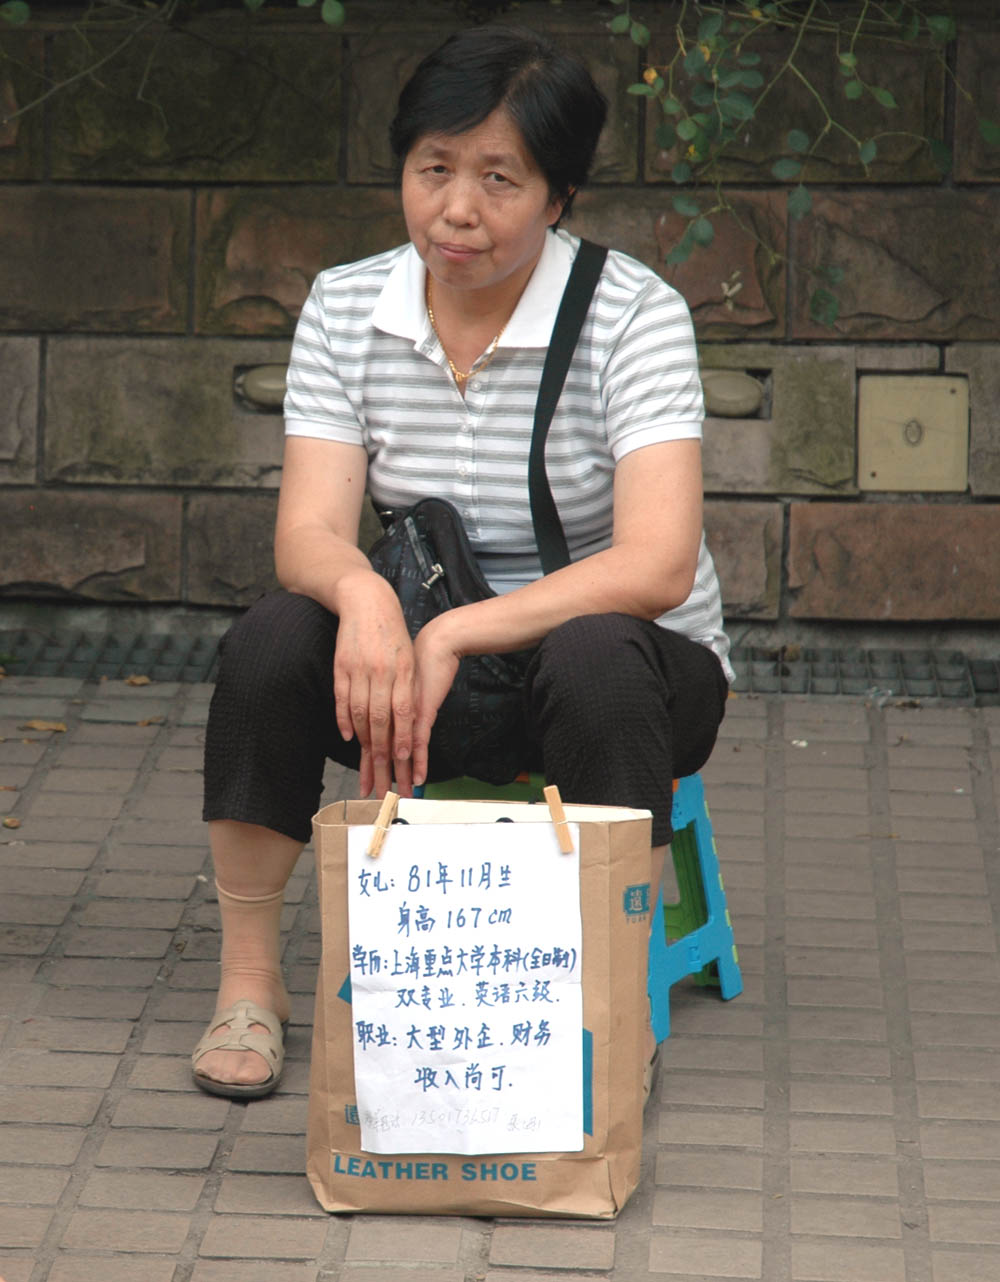 女儿：81年11月生
身高167cm
学历：上海重点大学本科(全日制)
双专业．英语六级．
职业：大型外企．财务
收入尚可．
LEATHER SHOE